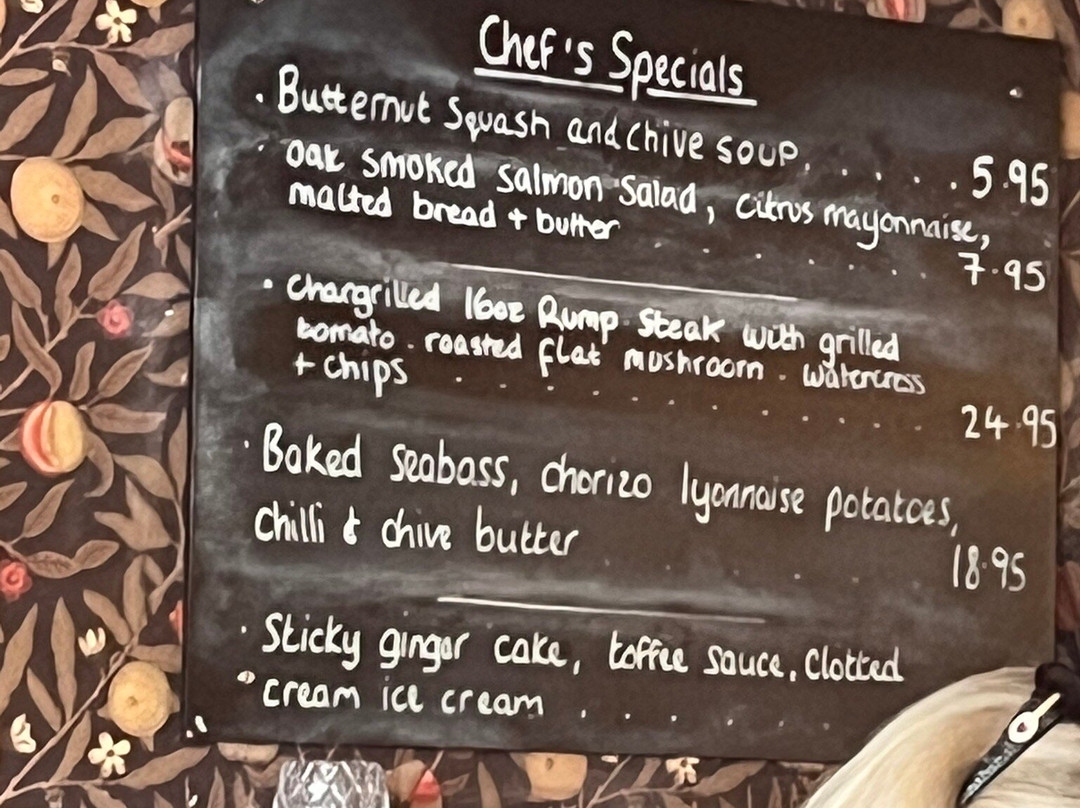 Chef's Specials
· Butternut Squash and chive soup. . . . . . 5.95
· oak smoked salmon salad, citrus mayonnaise,
malted bread + butter . . . . . . . 7.95
· Chargrilled 16oz Rump Steak with grilled
tomato . roasted flat mushroom . watercress
+ chips . . . . . . . . . . . 24.95
· Baked seabass, chorizo lyonnaise potatoes,
chilli & chive butter . . . . . 18.95
· Sticky ginger cake, toffee sauce, Clotted
cream ice cream . . . . . .